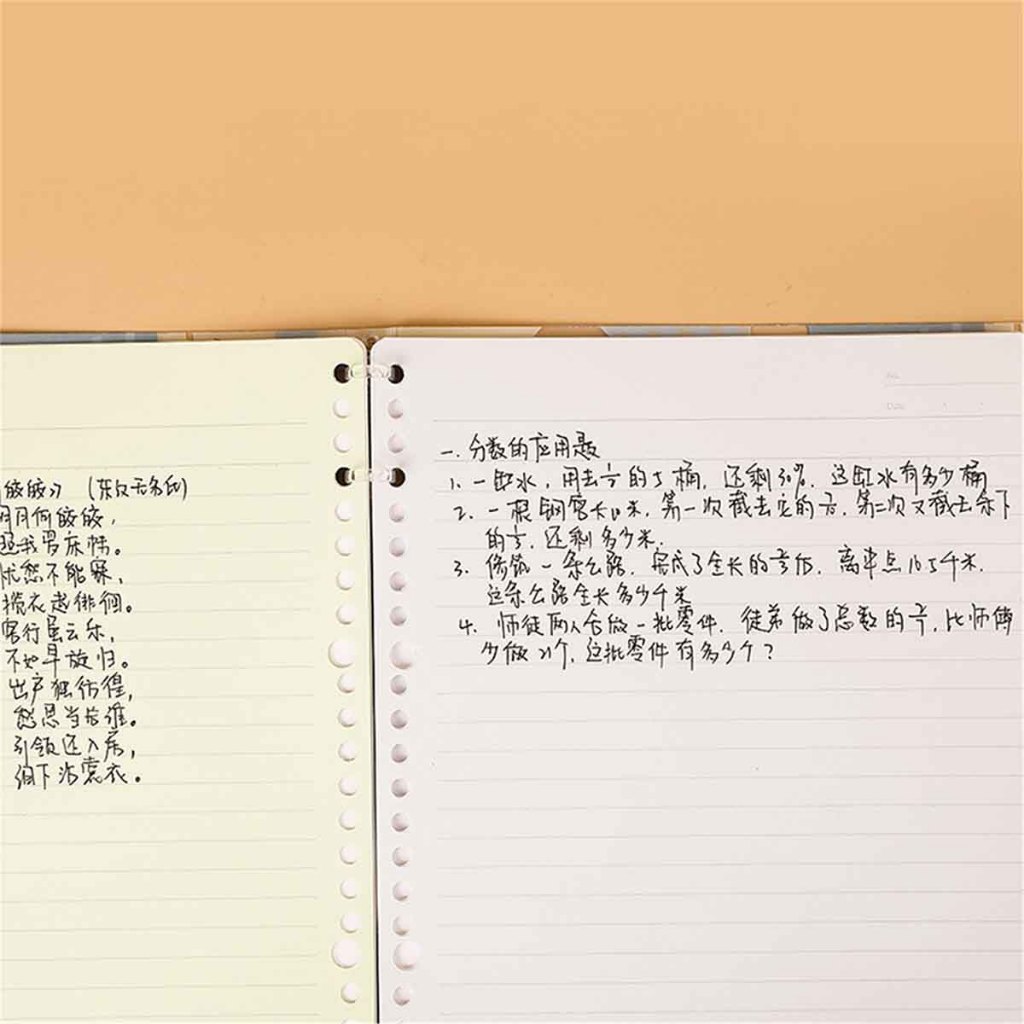 皎皎》 (东汉无名氏)
明月何皎皎,
照我罗床帏。
忧愁不能寐,
揽衣起徘徊。
客行虽云乐,
不如早旋归。
出户独彷徨,
愁思当告谁。
引领还入房,
泪下沾裳衣。
No.
Date
一. 分数的应用题
1. 一缸水, 用去 的5桶, 还剩30%, 这缸水有多少桶
2. 一根钢管长10米, 第一次截去它的 , 第二次又截去余下
的 , 还剩多少米.
3. 修筑一条公路, 完成了全长的 后, 离中点16.5千米,
这条公路全长多少千米
4. 师徒两人合做一批零件, 徒弟做了总数的 , 比师傅
少做21个, 这批零件有多少个?